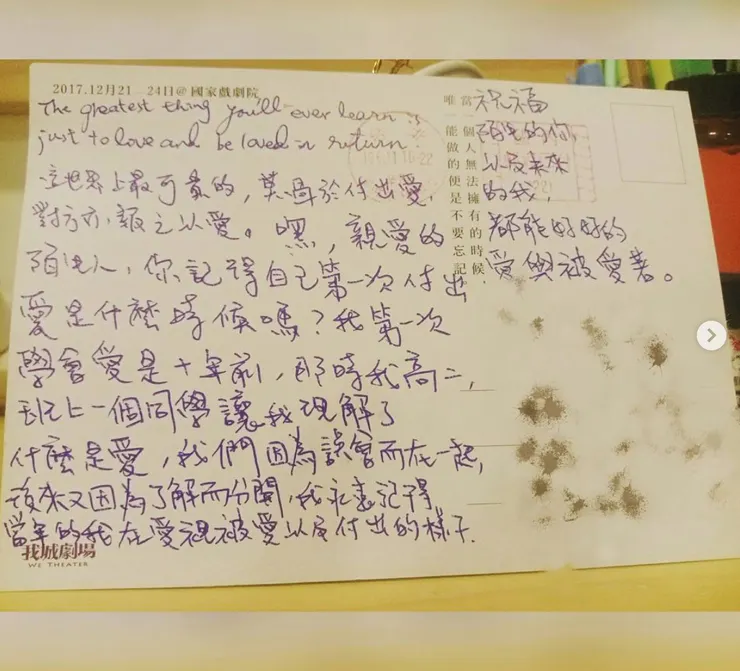 2017.12月21–24日@國家戲劇院
The greatest thing you'll ever learn is
just to love and be loved in return.
這世界上最可貴的，莫過於付出愛，
對方亦報之以愛。嘿，親愛的
陌生人，你記得自己第一次付出
愛是什麼時候嗎？我第一次
學會愛是十年前，那時我高二，
班上一個同學讓我理解了
什麼是愛，我們因為誤會而在一起，
後來又因為了解而分開，我永遠記得，
當年的我在愛裡被愛以及付出的樣子.
當一個人無法擁有的時候，
唯一能做的便是不要忘記
祝福
陌生的你，
以及未來
的我，
都能好好的
愛與被愛著。
我城劇場
WE THEATER